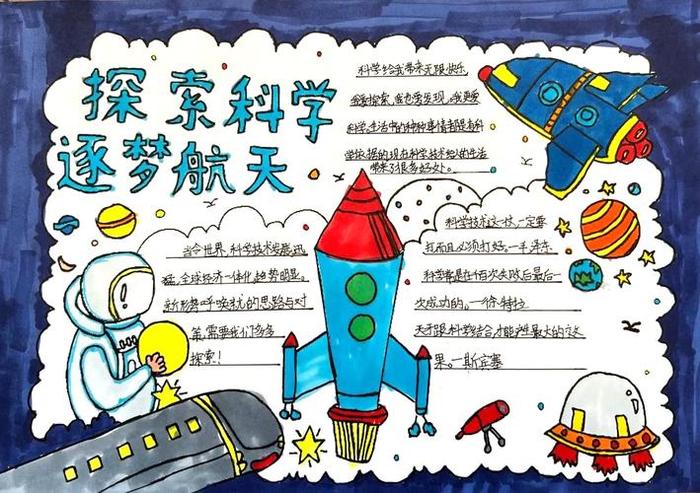 探索科学
逐梦航天
科学给我带来无限快乐,
我爱探索,我也爱发现,我更爱
科学,生活中的种种事情都是有科
学依据的,现在科学技术给人的生活
带来了很多好处。
当今世界,科学技术发展迅
猛,全球经济一体化趋势明显。
新形势呼唤我的思路与对
策,需要我们多多
探索!
科学技术这一仗,一定要
打,而且必须打好。—毛泽东
科学都是在百次失败后最后一
次成功的。—徐特拉
天才跟科学结合才能产生最大的
果。—斯宾塞